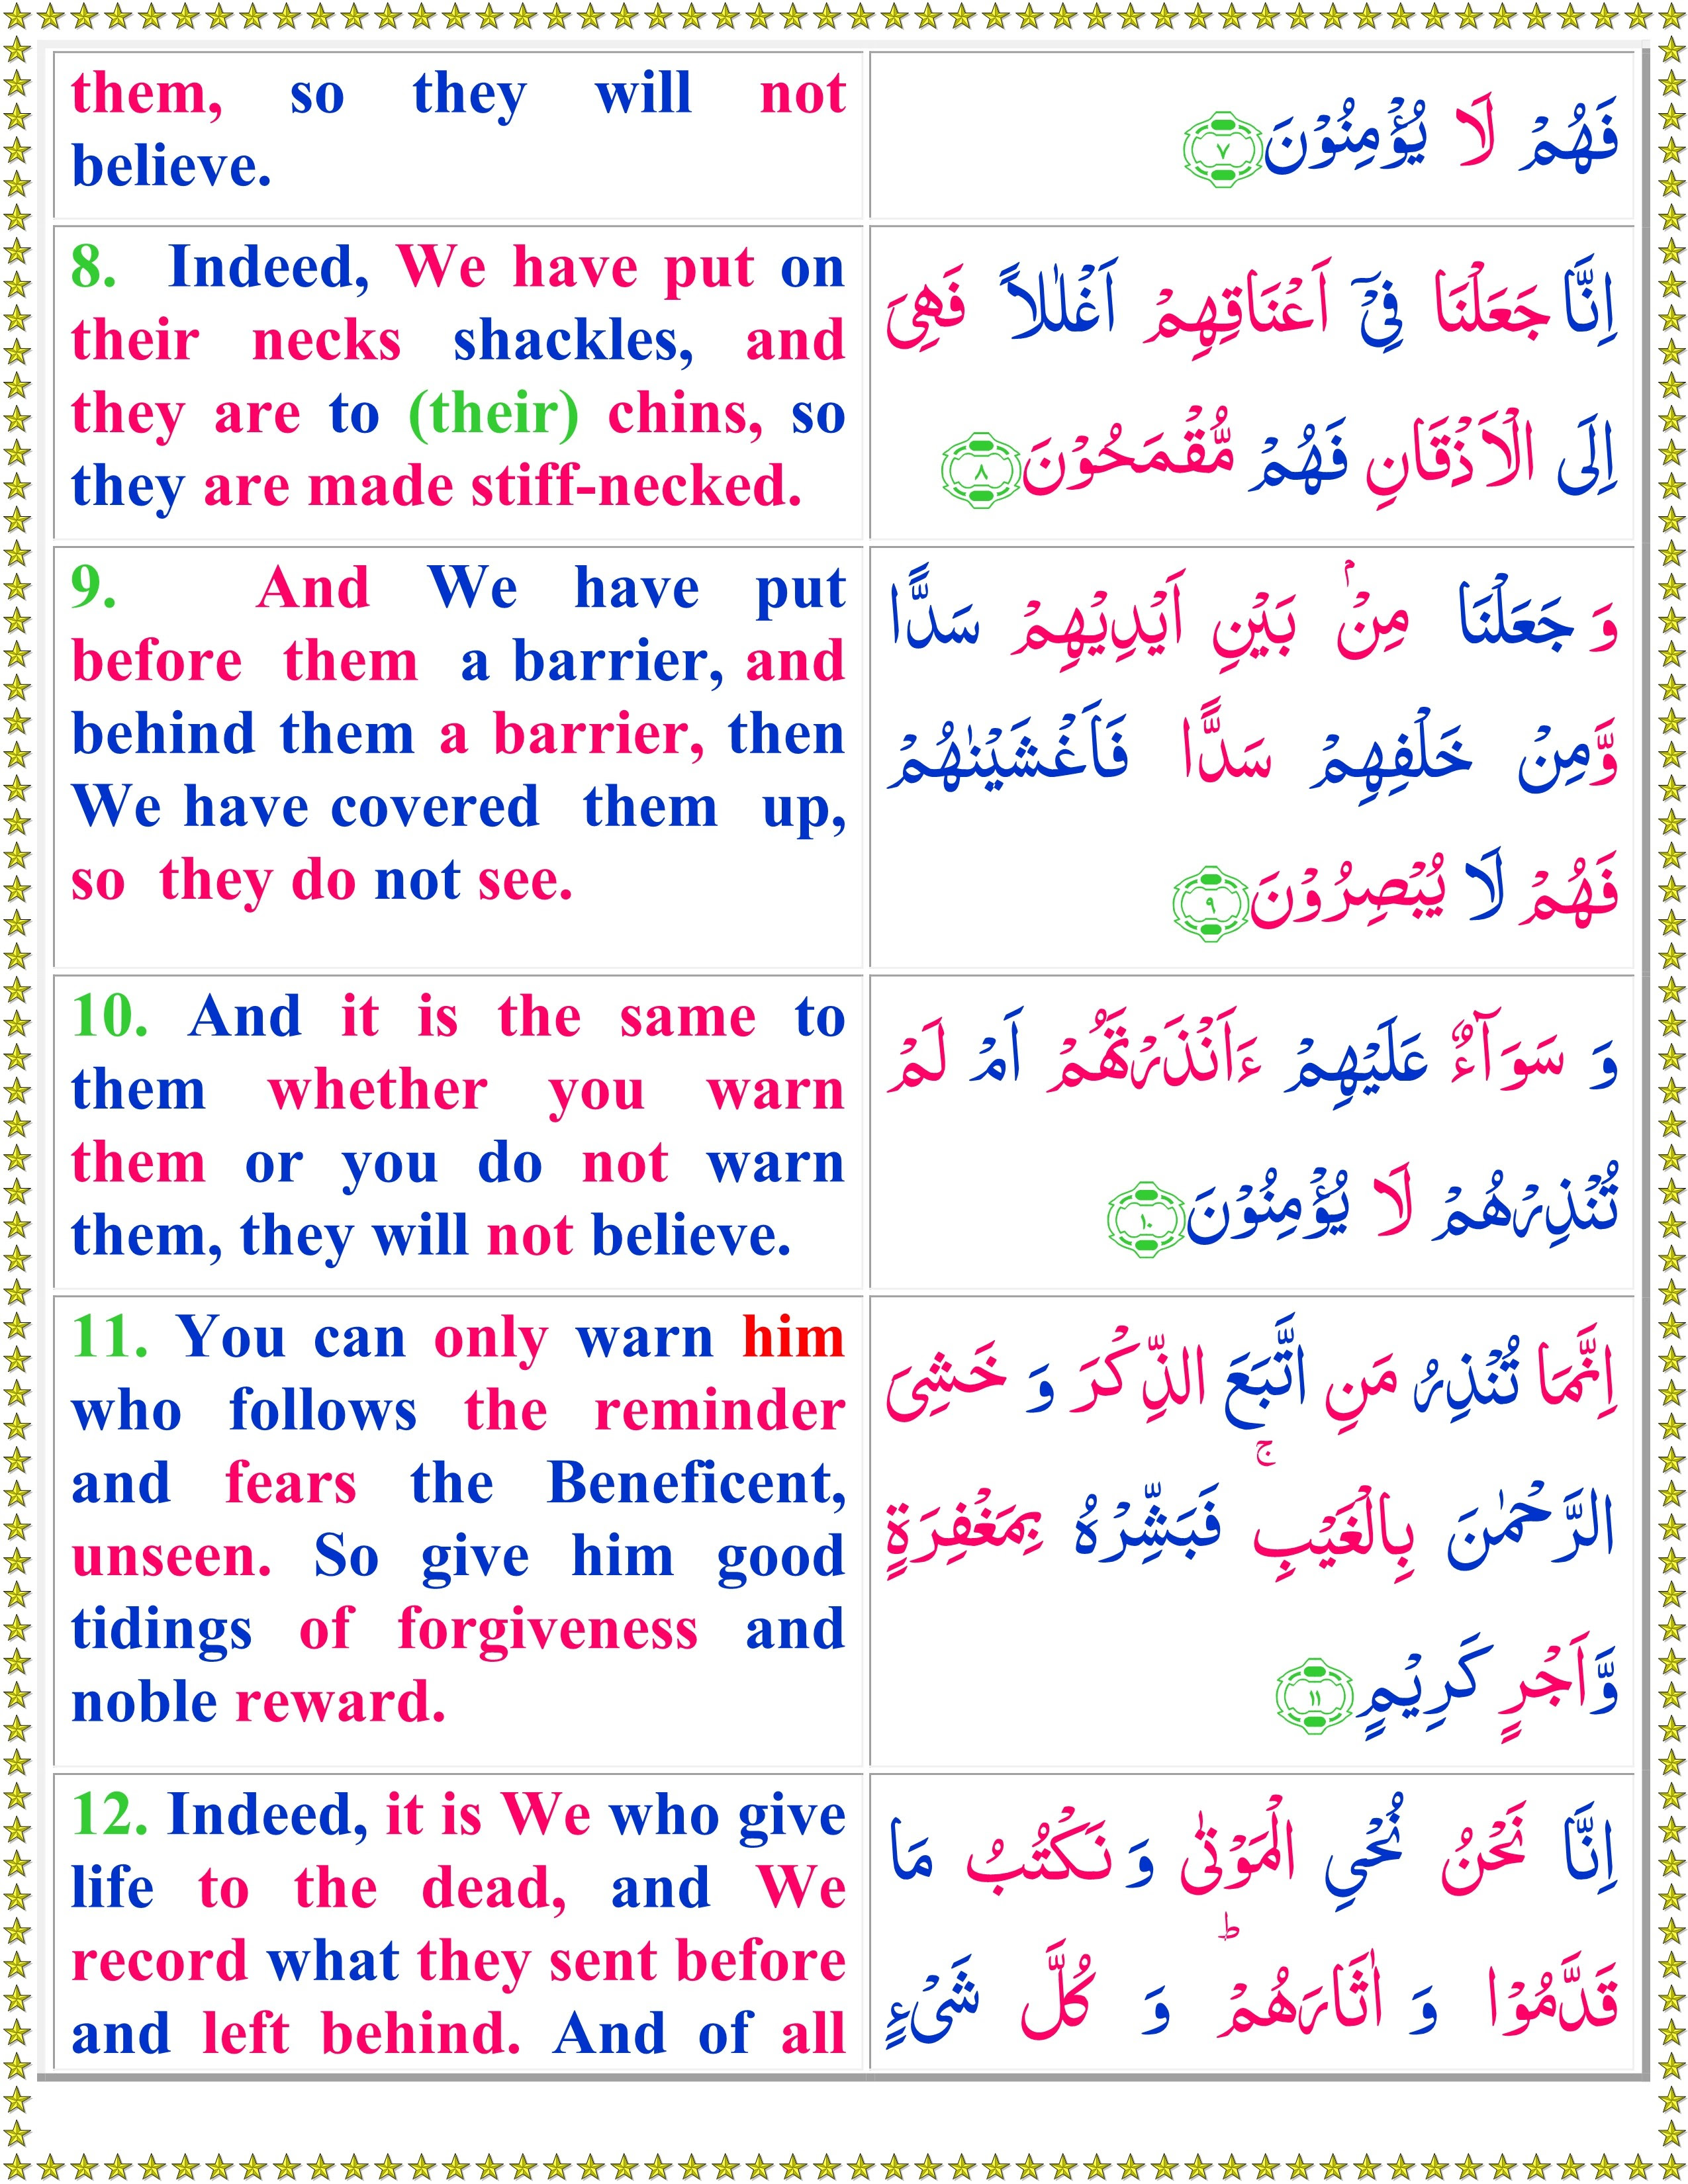 them, so they will not
believe.
فَهُمْ لَا يُؤْمِنُوْنَ ﴿۷﴾
8. Indeed, We have put on
their necks shackles, and
they are to (their) chins, so
they are made stiff-necked.
اِنَّا جَعَلْنَا فِىْۤ اَعْنَاقِهِمْ اَغْلٰلاً فَهِىَ
اِلَى الْاَذْقَانِ فَهُمْ مُّقْمَحُوْنَ ﴿۸﴾
9. And We have put
before them a barrier, and
behind them a barrier, then
We have covered them up,
so they do not see.
وَ جَعَلْنَا مِنْۢ بَيْنِ اَيْدِيْهِمْ سَدًّا
وَّمِنْ خَلْفِهِمْ سَدًّا فَاَغْشَيْنٰهُمْ
فَهُمْ لَا يُبْصِرُوْنَ ﴿۹﴾
10. And it is the same to
them whether you warn
them or you do not warn
them, they will not believe.
وَ سَوَآءٌ عَلَيْهِمْ ءَاَنْذَرْتَهُمْ اَمْ لَمْ
تُنْذِرْهُمْ لَا يُؤْمِنُوْنَ ﴿۱۰﴾
11. You can only warn him
who follows the reminder
and fears the Beneficent,
unseen. So give him good
tidings of forgiveness and
noble reward.
اِنَّمَا تُنْذِرُ مَنِ اتَّبَعَ الذِّكْرَ وَ خَشِىَ
الرَّحْمٰنَ بِالْغَيْبِۚ فَبَشِّرْهُ بِمَغْفِرَةٍ
وَّاَجْرٍ كَرِيْمٍ ﴿۱۱﴾
12. Indeed, it is We who give
life to the dead, and We
record what they sent before
and left behind. And of all
اِنَّا نَحْنُ نُحْىِ الْمَوْتٰى وَ نَكْتُبُ مَا
قَدَّمُوْا وَ اٰثَارَهُمْؕ وَ كُلَّ شَىْءٍ